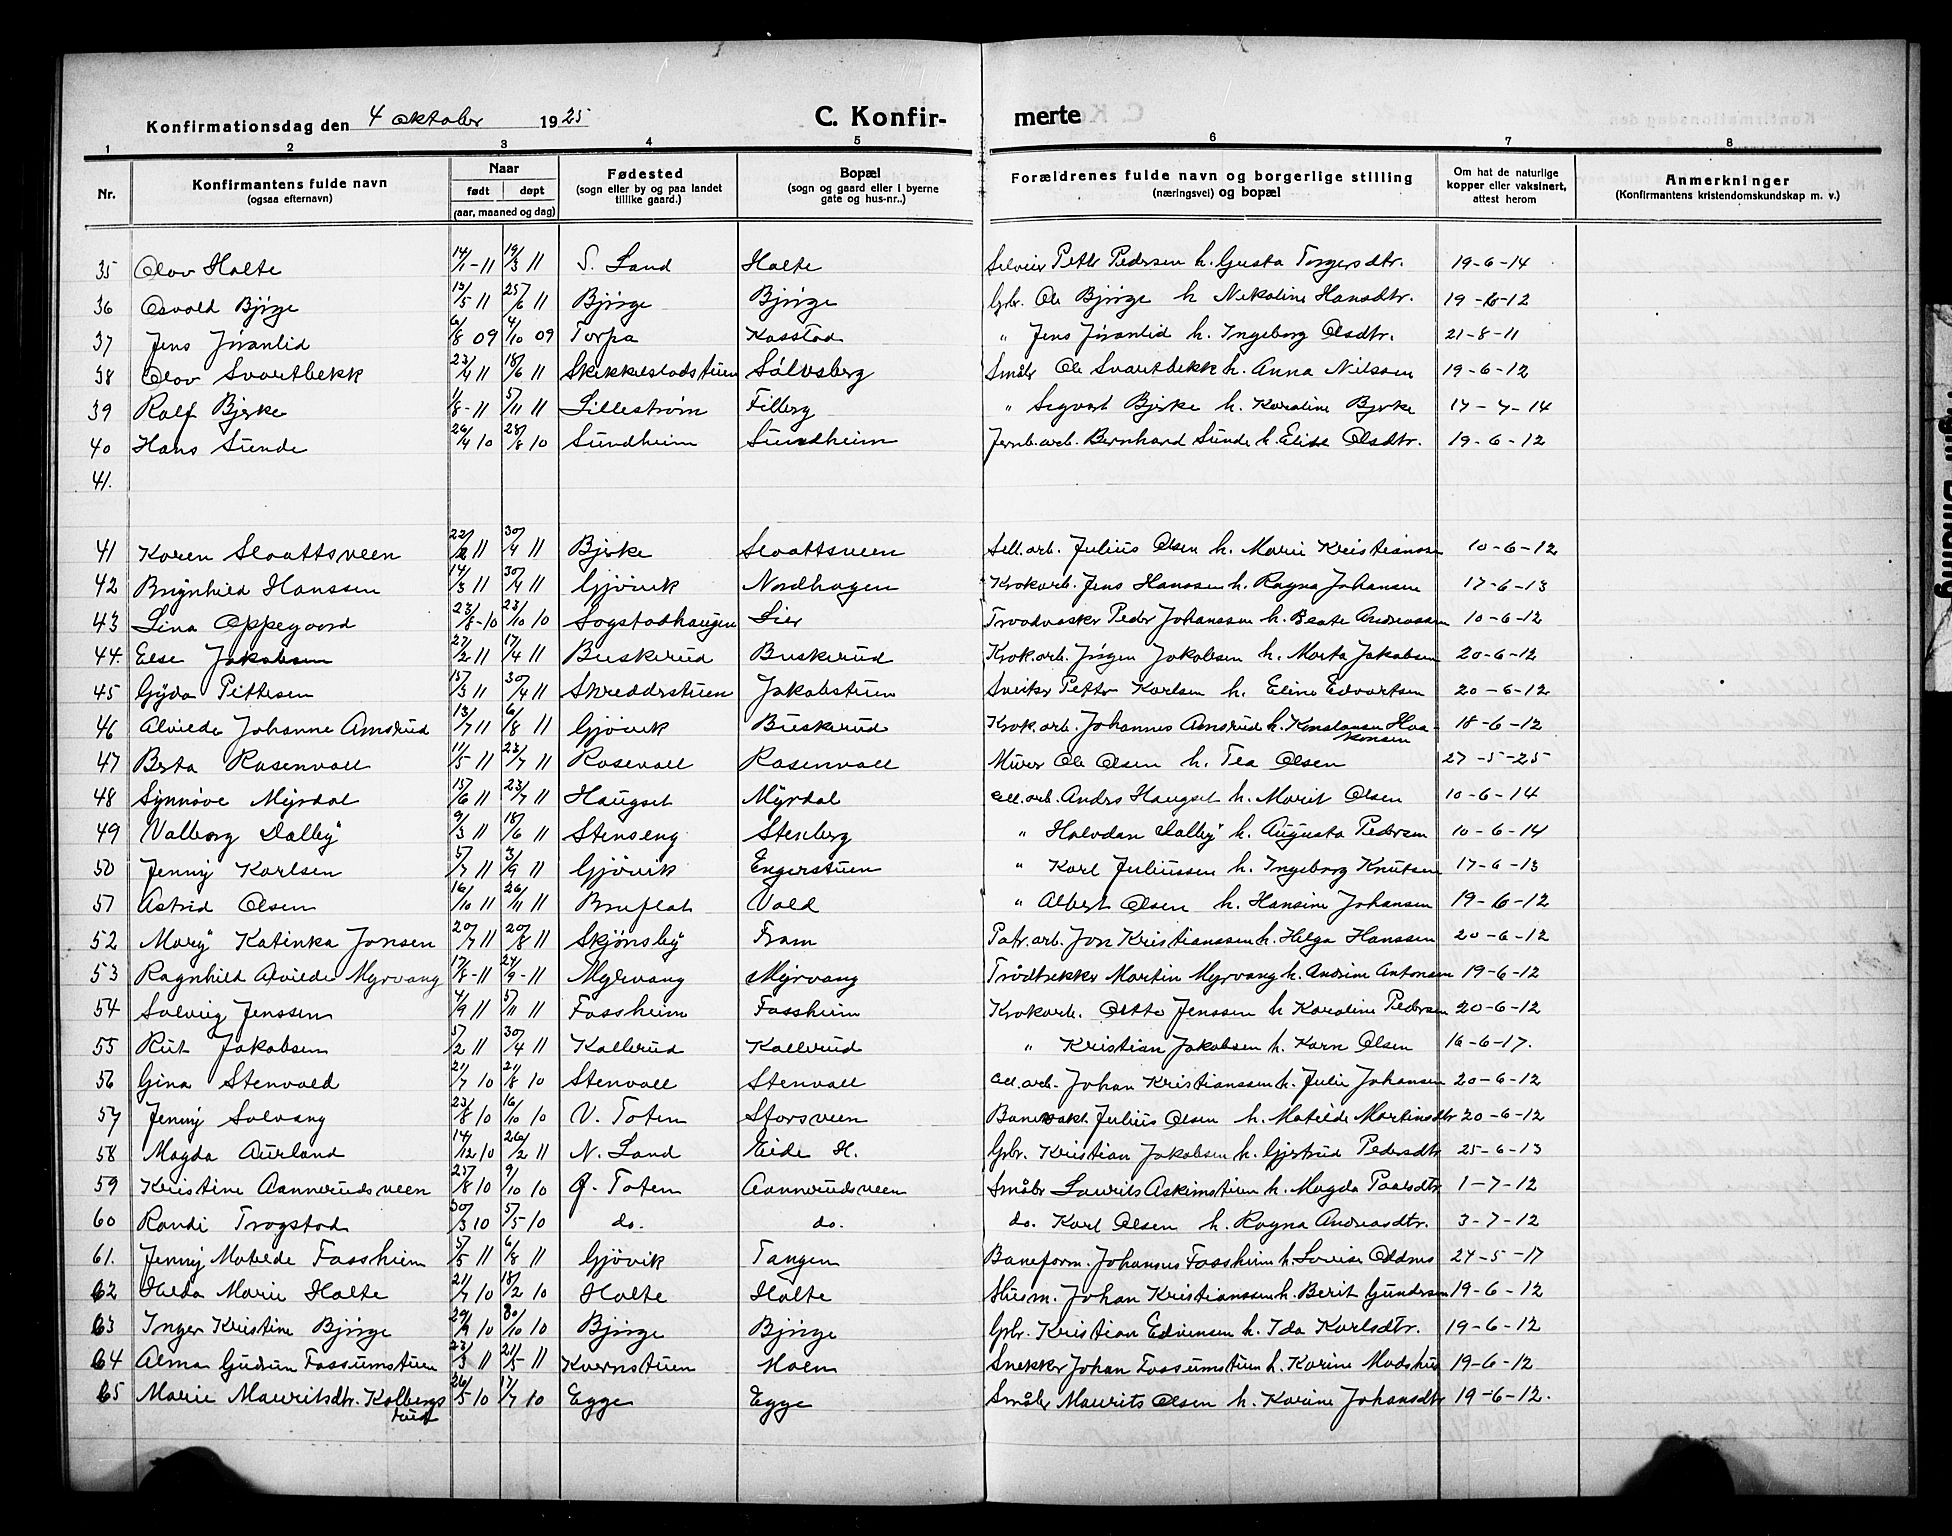 Konfirmationsdag den 4 oktober 1925 C. Konfir- merte
1 2 3 4 5 6 7 8
Nr. Konfirmantens fulde navn (ogsaa efternavn) Naar født døpt (aar, maaned og dag) Fødested (sogn eller by og paa landet tillike gaard.) Bopæl (sogn og gaard eller i byerne gate og hus-nr..) Forældrenes fulde navn og borgerlige stilling (næringsvei) og bopæl Om hat de naturlige kopper eller vaksinert, attest herom Anmerkninger (Konfirmantens kristendomskundskap m. v.)
35 Olov Holte 14/1-11 19/3 11 S. Land Holte Petter Pedersen h. Gusta Torgersdtr. 19-6-14
36 Osvald Bjørge 13/5 11 25/6 11 Bjørge Bjørge Grbr. Ole Bjørge h. Nikoline Hansdtr. 19-6-12
37 Jens Jøranlid 6/8 09 4/10 09 Torpa Kasstad " Jens Jøranlid h. Ingeborg Olsdtr. 21-8-11
38 Olov Svartbekk 23/4 11 18/6 11 Skikkelstadstuen Sølvsberg Småbr Ole Svartbekk h. Anna Nilssen 19-6-12
39 Rolf Bjerke 1/8-11 5/11 11 Lillestrøm Filberg " Sigvart Bjerke h. Karoline Bjerke 17-7-14
40 Hans Sunde 26/4 10 28/8 10 Sundheim Sundheim Jernb.arb. Bernhard Sunde h. Elise Olsdtr. 19-6-12
41.
41 Karen Slaattsveen 22/2 11 30/4 11 Bjerke Slaattsveen Cell.arb. Julius Olsen h. Marie Kristianssen 10-6-12
42 Brynhild Hanssen 14/3 11 30/4 11 Gjøvik Nordhagen Krokarb. Jens Hanssen h. Ragna Johansen 17-6-13
43 Lina Oppegaard 23/8-10 23/10 10 Sogstadhaugen Lier Peder Johanssen h. Beate Andreassen 10-6-12
44. Else Jakobsen 27/2 11 17/4 11 Buskerud Buskerud Krok.arb. Jørgen Jakobsen h. Marta Jakobsen 20-6-12
45 Gyda Pettersen 15/3 11 30/4 11 Skreddestuen Jakobstuen Sveiser Petter Karlsen h. Eline Edvartsen 20-6-12
46 Alvilde Johanne Amsrud 13/7 11 6/8 11 Gjøvik Buskerud Krok.arb. Johannes Amsrud h. Konstanse Haa-
konsen 18-6-12
47 Berta Rosenvall 11/5 11 23/7 11 Rosevall Rosenvall Murer Ole Olsen h. Tea Olsen 27-5-25
48 Synnøve Myrdal 15/6 11 23/7 11 Haugset Myrdal Cell.arb. Andrs Haugset h. Marit Olsen 10-6-14
49 Valborg Dalby 9/3 11 18/6 11 Stenseng Stenberg " Halvdan Dalby h. Augusta Pedersen 10-6-14
50 Jenny Karlsen 5/7 11 3/9 11 Gjøvik Engerstuen " Karl Juliussen h. Ingeborg Knutsen 17-6-13
51 Astrid Olsen 16/10 11 26/11 11 Bruflat Vold " Albert Olsen h. Hansine Johansen 19-6-12
52 Mary Katinka Jonsen 20/7 11 20/8 11 Skjønsby Fram Patr.arb. Jon Kristianssen h. Helga Hanssen 20-6-12
53 Ragnhild Alvilde Myrvang 17/8-11 24/9-11 Myrvang Myrvang Trådtrekker Martin Myrvang h. Andrine Antonsen 19-6-12
54 Solveig Jenssen 4/9 11 5/11 11 Fossheim Fossheim Krokarb. Otto Jenssen h. Karoline Pedersen 20-6-12
55 Rut Jakobsen 5/2 11 30/4 11 Kallerud Kallerud " Kristian Jakobsen h. Karn Olsen 16-6-17.
56 Gina Stenvald 21/7 10 21/8 10 Stenvall Stenvall Cell.arb. Johan Kristianssen h. Julie Johansen 20-6-12
57 Jenny Solvang 23/8 10 16/10 10 V. Toten Storsveen Banevakt Julius Olsen h. Matilde Martinsdtr 20-6-12
58 Magda Aurland 14/12 10 26/2 11 N. Land Eide H. Grbr. Kristian Jakobsen h. Gjertrud Pedersdtr 25-6-13
59 Kristine Aannerudsveen 25/8 10 9/10 10 Ø. Toten Aannerudsveen Småbr Laurits Askimstuen h. Magda Paalsdtr 1-7-12
60 Randi Trogstad 30/3 10 5/5-10 do. do. do. Karl Olsen h. Ragna Andreasdtr. 3-7-12
61. Jenny Matilde Fossheim 5/5 11 6/8 11 Gjøvik Tangen Baneform. Johannes Fossheim h. Lovise Oddnes 24-5-17
62 Hilda Marie Holte 21/7 10 18/2 10 Holte Holte Husm. Johan Kristianssen h. Berit Gundersen 19-6-12
63 Inger Kristine Bjørge 29/9 10 30/10 10 Bjørge Bjørge Grbr. Kristian Edvinsen h. Ida Karlsdtr. 19-6-12
64 Alma Gudrun Fossumstuen 23/3 11 21/5-11 Kvernstuen Moen Snekker Johan Fossumstuen h. Karine 19-6-12
65 Marie Mauritsdtr. Kolbergs
rud 26/5 10 17/7 10 Egge Egge Småbr Maurits Olsen h. Karine Johansdtr 19-6-12.